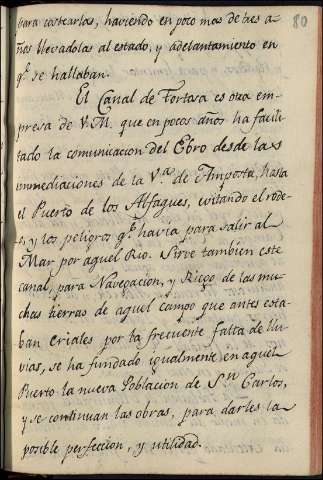 80
para costearlas, haviendo en poco mas de tres a-
ños llevadolas al estado, y adelantamiento en
qͤ. se hallaban.
El Canal de Tortosa es otra em-
presa de V. M. que en pocos años ha facili-
tado la comunicacion del Ebro desde las
inmediaciones de la V.ª de Amposta, hasta
el Puerto de los Alfaques, evitando el rode-
o, y los peligros qͤ. havia para salir al
Mar por aquel Rio. Sirve tambien este
canal, para Navegacion, y Riego de las mu-
chas tierras de aquel campo que antes esta-
ban eriales por la frecuente falta de llu-
vias, se ha fundado igualmente en aquel
Puerto la nueva Poblacion de Sⁿ Carlos,
y se continuan las obras, para darles la
posible perfeccion, y utilidad.